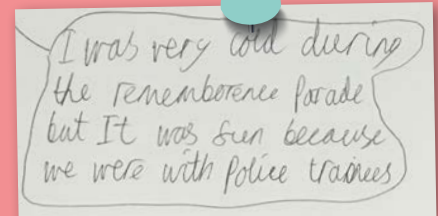 I was very cold during
the rememberence Parade
but It was fun because
we were with Police trainees